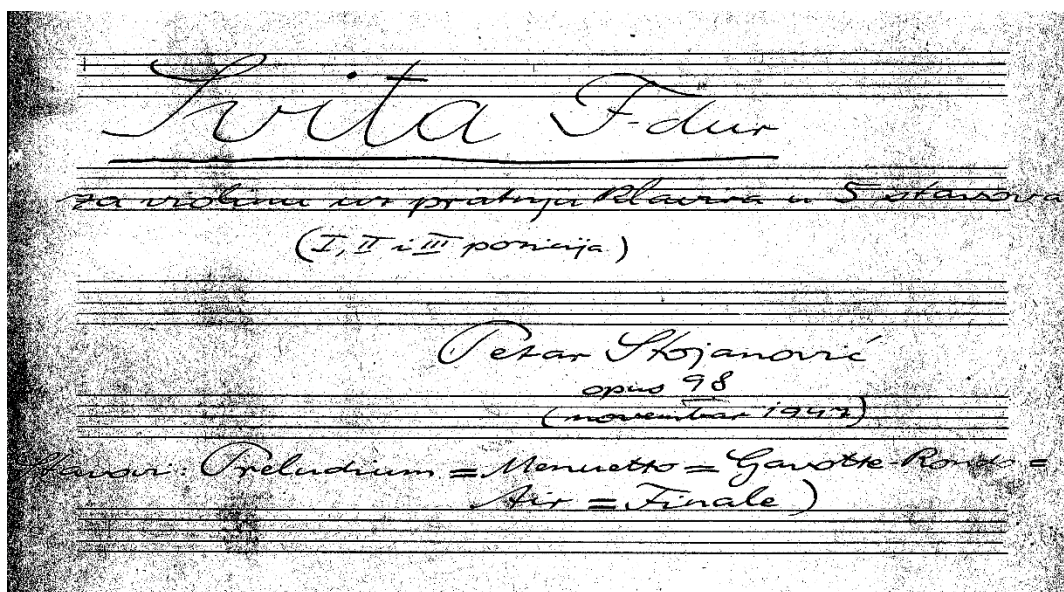 Svita F-dur
za violinu uz pratnju klavira u 5 stavova
(I, II i III pozicija)
Petar Stojanović
opus 98
(novembar 1947)
Stavovi: Preludium = Menuetto = Gavotte-Rondo =
Air = Finale)